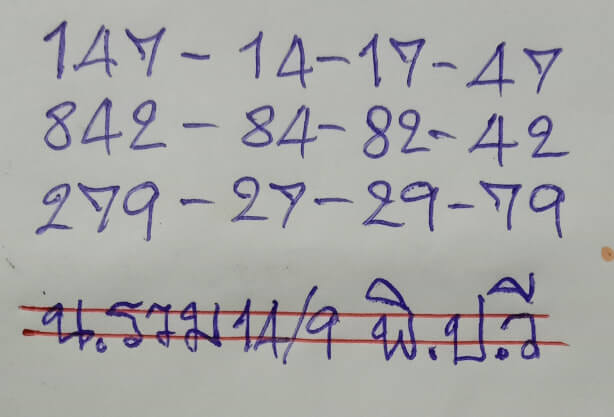 147 - 14 - 17 - 47
842 - 84 - 82 - 42
279 - 27 - 29 - 79
น.รวม 14/9 พิ.ป.วี